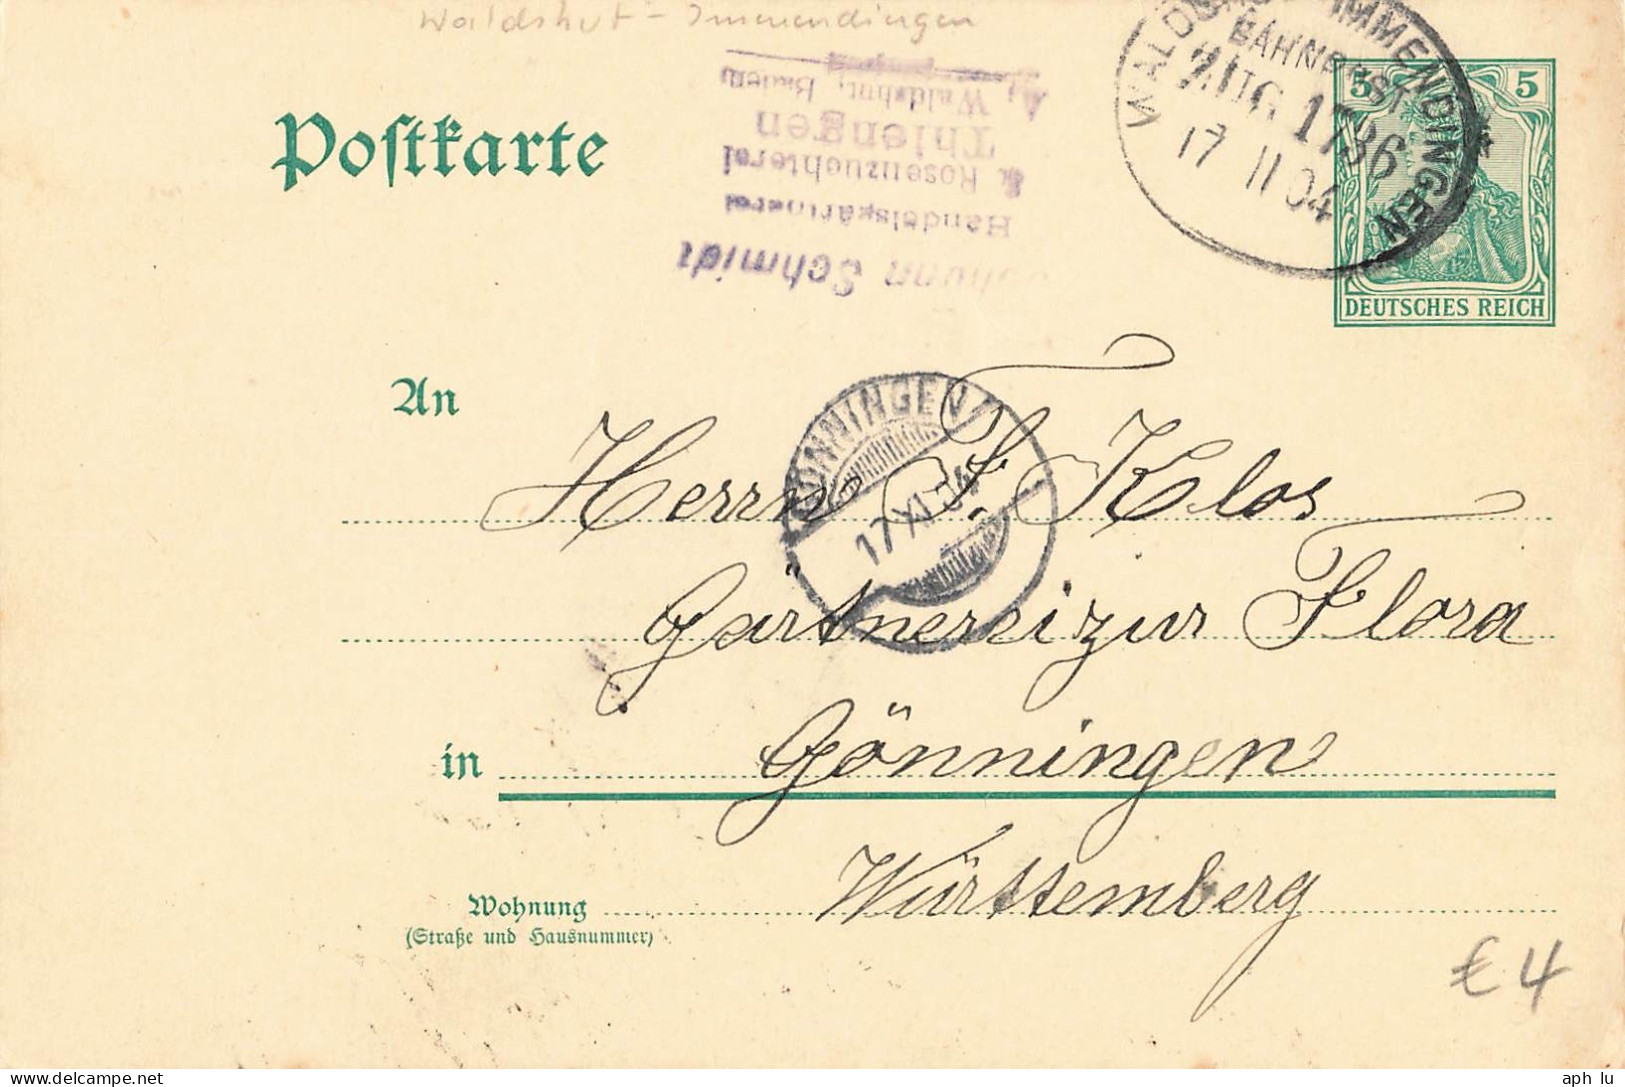 Waldshut - Immendingen
WALDSHUT IMMENDINGEN
BAHNPOST
ZUG 1786
17 11 04
5 5
DEUTSCHES REICH
Postkarte
Johann Schmidt
Handelsgärtnerei
& Rosenzuchterei
Thiengen
A, Waldshut, Baden
An
GÖNNINGEN
17 XI 04
Herrn F. Klos
Gärtnerei zur Flora
in Gönningen
Württemberg
Wohnung
(Straße und Hausnummer)
€ 4
aph lu